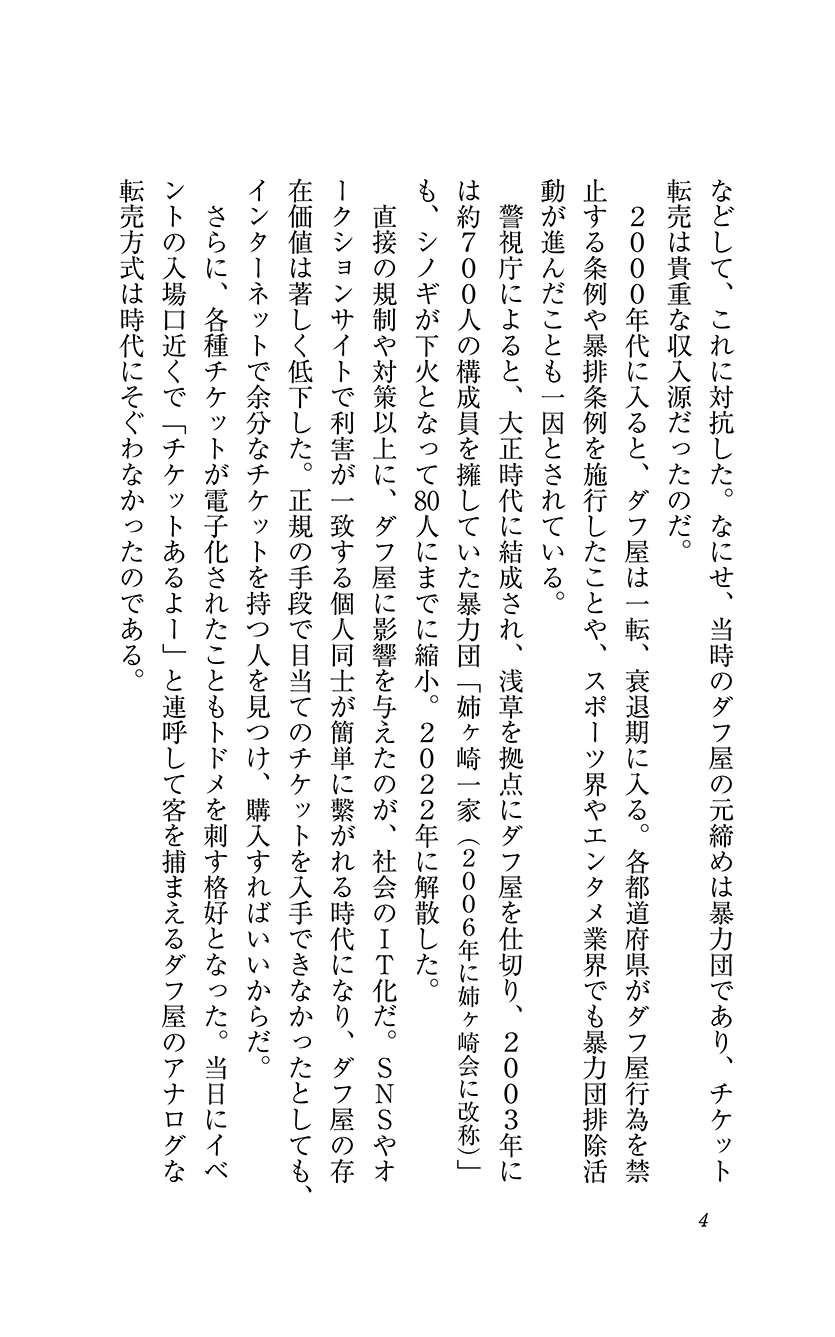 などして、これに対抗した。なにせ、当時のダフ屋の元締めは暴力団であり、チケット
転売は貴重な収入源だったのだ。
　２０００年代に入ると、ダフ屋は一転、衰退期に入る。各都道府県がダフ屋行為を禁
止する条例や暴排条例を施行したことや、スポーツ界やエンタメ業界でも暴力団排除活
動が進んだことも一因とされている。
　警視庁によると、大正時代に結成され、浅草を拠点にダフ屋を仕切り、２００３年に
は約７００人の構成員を擁していた暴力団「姉ヶ崎一家（２００６年に姉ヶ崎会に改称）」
も、シノギが下火となって80人にまでに縮小。２０２２年に解散した。
　直接の規制や対策以上に、ダフ屋に影響を与えたのが、社会のＩＴ化だ。ＳＮＳやオ
ークションサイトで利害が一致する個人同士が簡単に繫がれる時代になり、ダフ屋の存
在価値は著しく低下した。正規の手段で目当てのチケットを入手できなかったとしても、
インターネットで余分なチケットを持つ人を見つけ、購入すればいいからだ。
　さらに、各種チケットが電子化されたこともトドメを刺す格好となった。当日にイベ
ントの入場口近くで「チケットあるよー」と連呼して客を捕まえるダフ屋のアナログな
転売方式は時代にそぐわなかったのである。
4